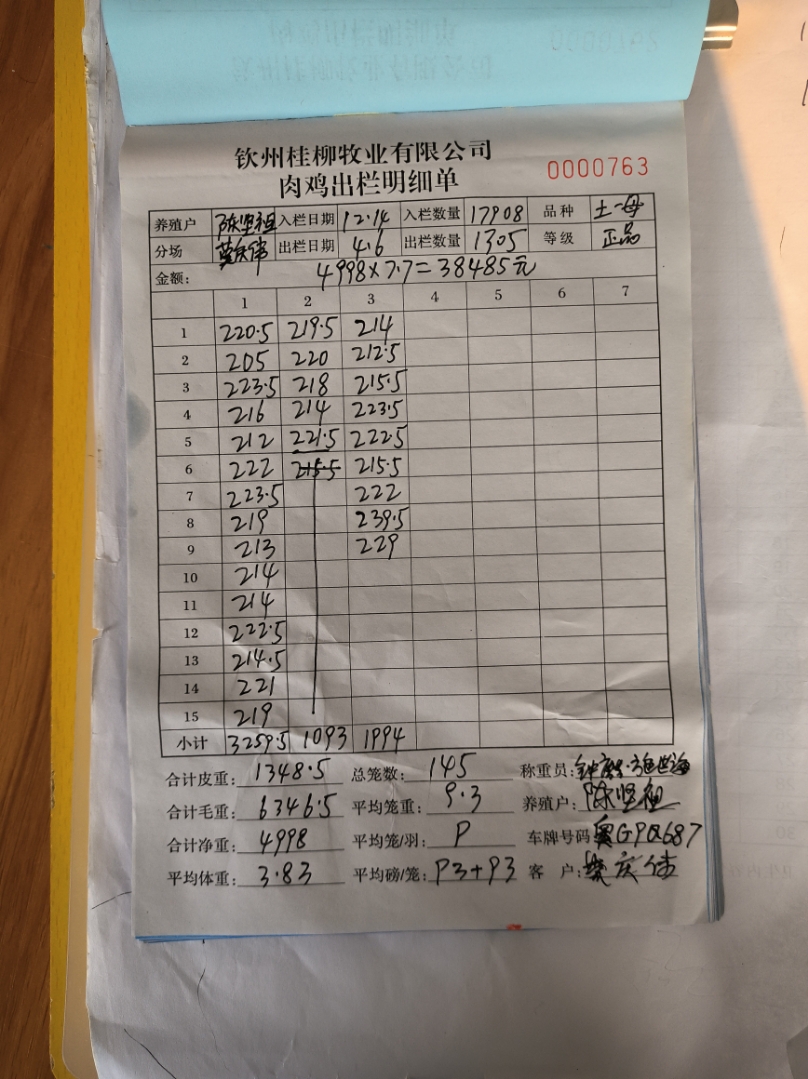 钦州桂柳牧业有限公司
肉鸡出栏明细单
0000763
养殖户 陈坚祖 入栏日期 12.14 入栏数量 17908 品种 土一母
分场 出栏日期 4.6 出栏数量 1305 等级 正品
金额: 4998×7.7=38485元
1 2 3 4 5 6 7
1 220.5 219.5 214
2 205 220 212.5
3 223.5 218 215.5
4 216 214 223.5
5 212 221.5 222.5
6 222 215.5 215.5
7 223.5 222
8 219 239.5
9 213 229
10 214
11 214
12 222.5
13 214.5
14 221
15 219
小计 3259.5 1093 1994
合计皮重: 1348.5 总笼数: 145 称重员:
合计毛重: 6346.5 平均笼重: 9.3 养殖户: 陈坚祖
合计净重: 4998 平均笼/羽: 9 车牌号码
合计体重: 3.83 平均磅/笼: P3+P3 客 户: